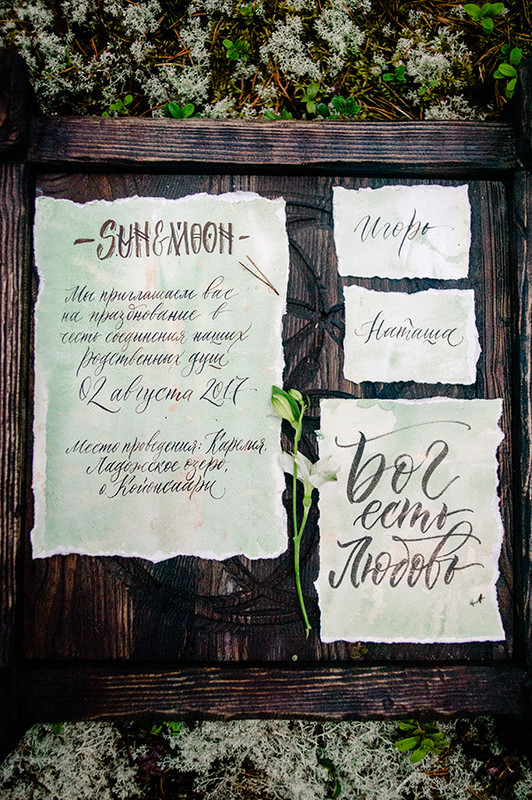 -SUN&MOON-
Мы приглашаем вас
на празднование в
честь соединения наших
родственных душ
02 августа 2017
Место проведения: Карелия,
Ладожское озеро,
о. Койонсаари
Игорь
Наташа
Бог
есть
Любовь